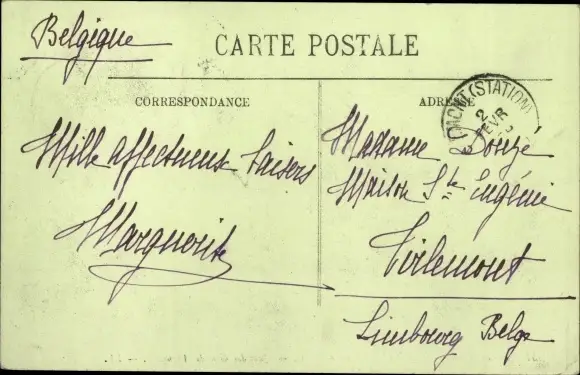 Belgique
CARTE POSTALE
CORRESPONDANCE
ADRESSE
(STATION)
2
FEVR
Mille affectueux baisers
Marguerite
Madame Bouzé
Maison Ste Eugénie
Tirlemont
Limbourg Belge